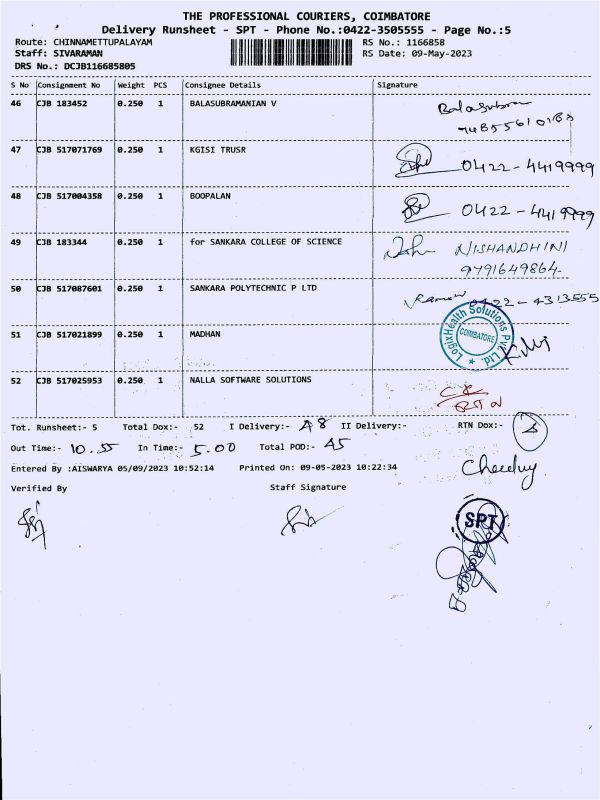 THE PROFESSIONAL COURIERS, COIMBATORE
Delivery Runsheet - SPT - Phone No.:0422-3505555 - Page No.:5
Route: CHINNAMETTUPALAYAM RS No.: 1166858
Staff: SIVARAMAN RS Date: 09-May-2023
DRS No.: DCJB116685805
S No Consignment No Weight PCS Consignee Details Signature
46 CJB 183452 0.250 1 BALASUBRAMANIAN V
47 CJB 517071769 0.250 1 KGISI TRUSR 0422-4419999
48 CJB 517004358 0.250 1 BOOPALAN 0422-4419999
49 CJB 183344 0.250 1 for SANKARA COLLEGE OF SCIENCE NISHANDHINI
9791649864
50 CJB 517087601 0.250 1 SANKARA POLYTECHNIC P LTD 0422-4313555
51 CJB 517021899 0.250 1 MADHAN LogixHealth Solutions Pvt. Ltd. COIMBATORE
52 CJB 517025953 0.250 1 NALLA SOFTWARE SOLUTIONS
RTN
Tot. Runsheet:- 5 Total Dox:- 52 I Delivery:- 48 II Delivery:- RTN Dox:-
Out Time:- 10.55 In Time:- 5.00 Total POD:- 45
Entered By :AISWARYA 05/09/2023 10:52:14 Printed On: 09-05-2023 10:22:34
Verified By Staff Signature
SPT